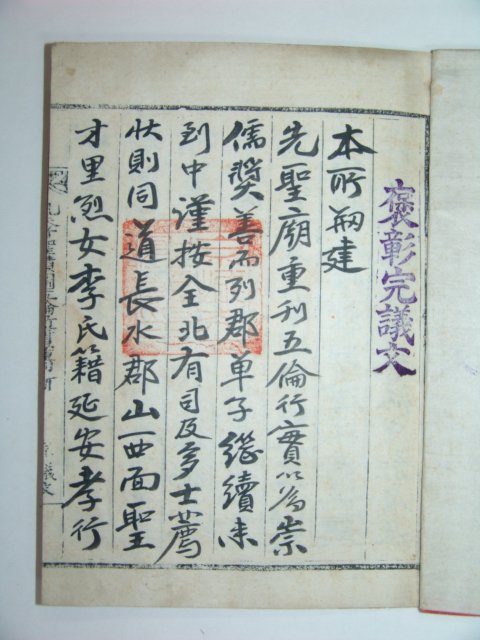 褒彰完議文
本所刱建
先聖廟重刊五倫行實以為崇
儒奬善而列郡單子繼續来
到中謹按全北有司及多士薦
状則同道長水郡山西面聖
才里烈女李氏籍延安孝行